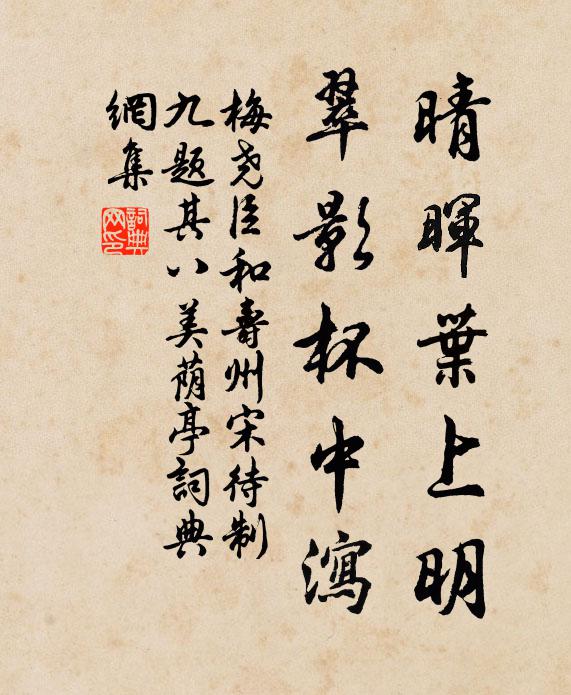 晴暉葉上明
翠影杯中瀉
梅尧臣和壽州宋待制
九题其八美蔭亭詞典
網集
詞典网印